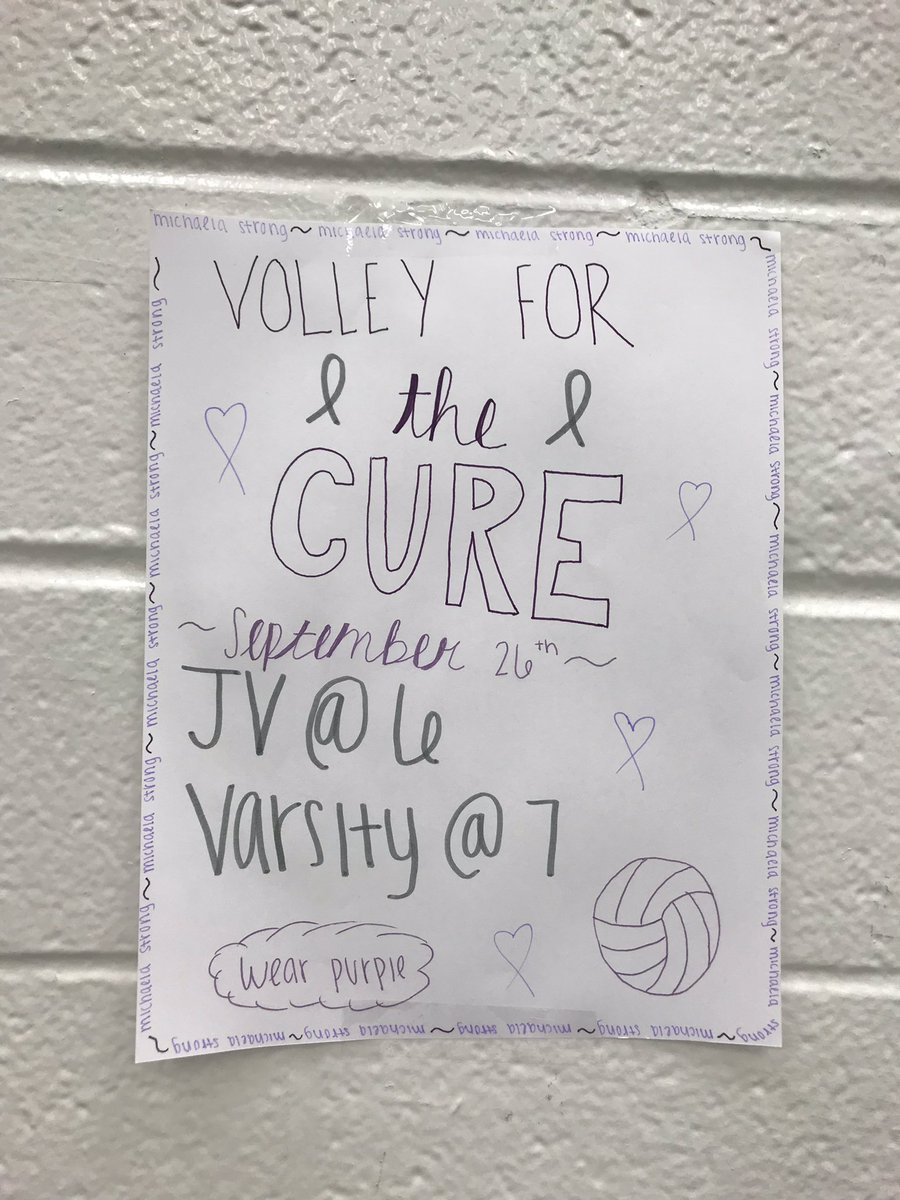 michaela strong~michaela strong~michaela strong~michaela strong~
michaela strong~michaela strong~michaela strong~michaela strong~michaela strong~michaela strong
VOLLEY FOR
the
CURE
~September 26th~
JV @ 6
Varsity @ 7
wear purple
michaela strong~michaela strong~michaela strong~michaela strong~michaela strong~
michaela strong~michaela strong~michaela strong~michaela strong~